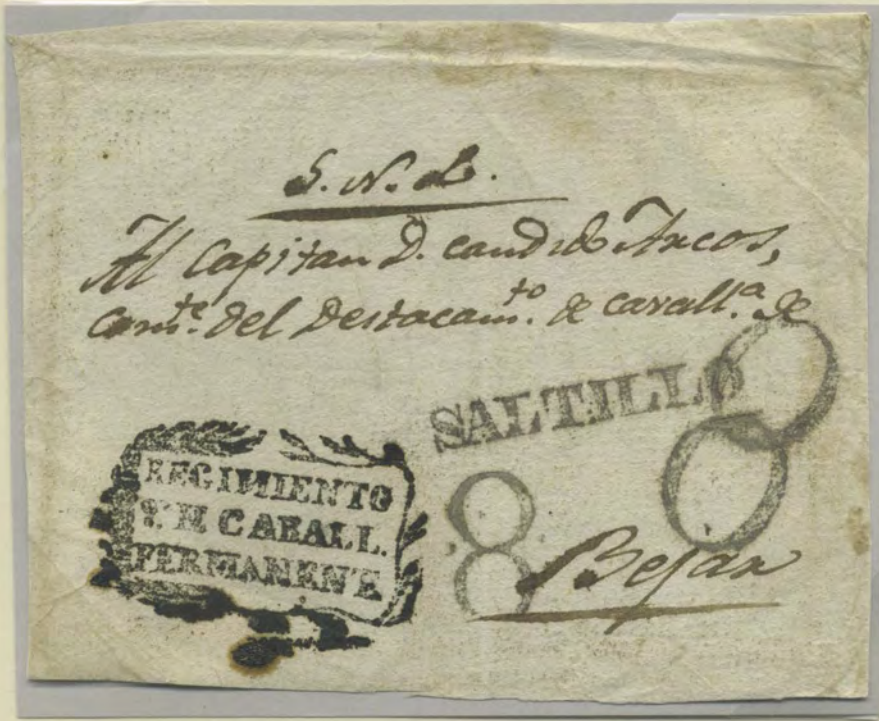 S. N. L.
Al Capitan D. Candido Arcos,
Com.te del Destacam.to de cavall.a de
SALTILLO
8
8
REGIMIENTO
CABALL.
PERMANEN E
Bejar